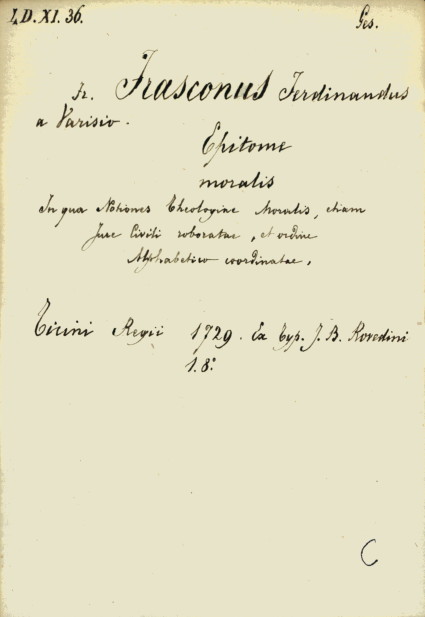 I,D.XI.36.
Ges.
Fr. Frasconus Ferdinandus
a Varisio.
Epitome
moralis
In qua Notiones Theologiae Moralis, etiam
Jure Civili roboratae, et ordine
Alphabetico coordinatae.
Ticini Regii 1729. Ex Typ. J. B. Rovedini
1.8°
C